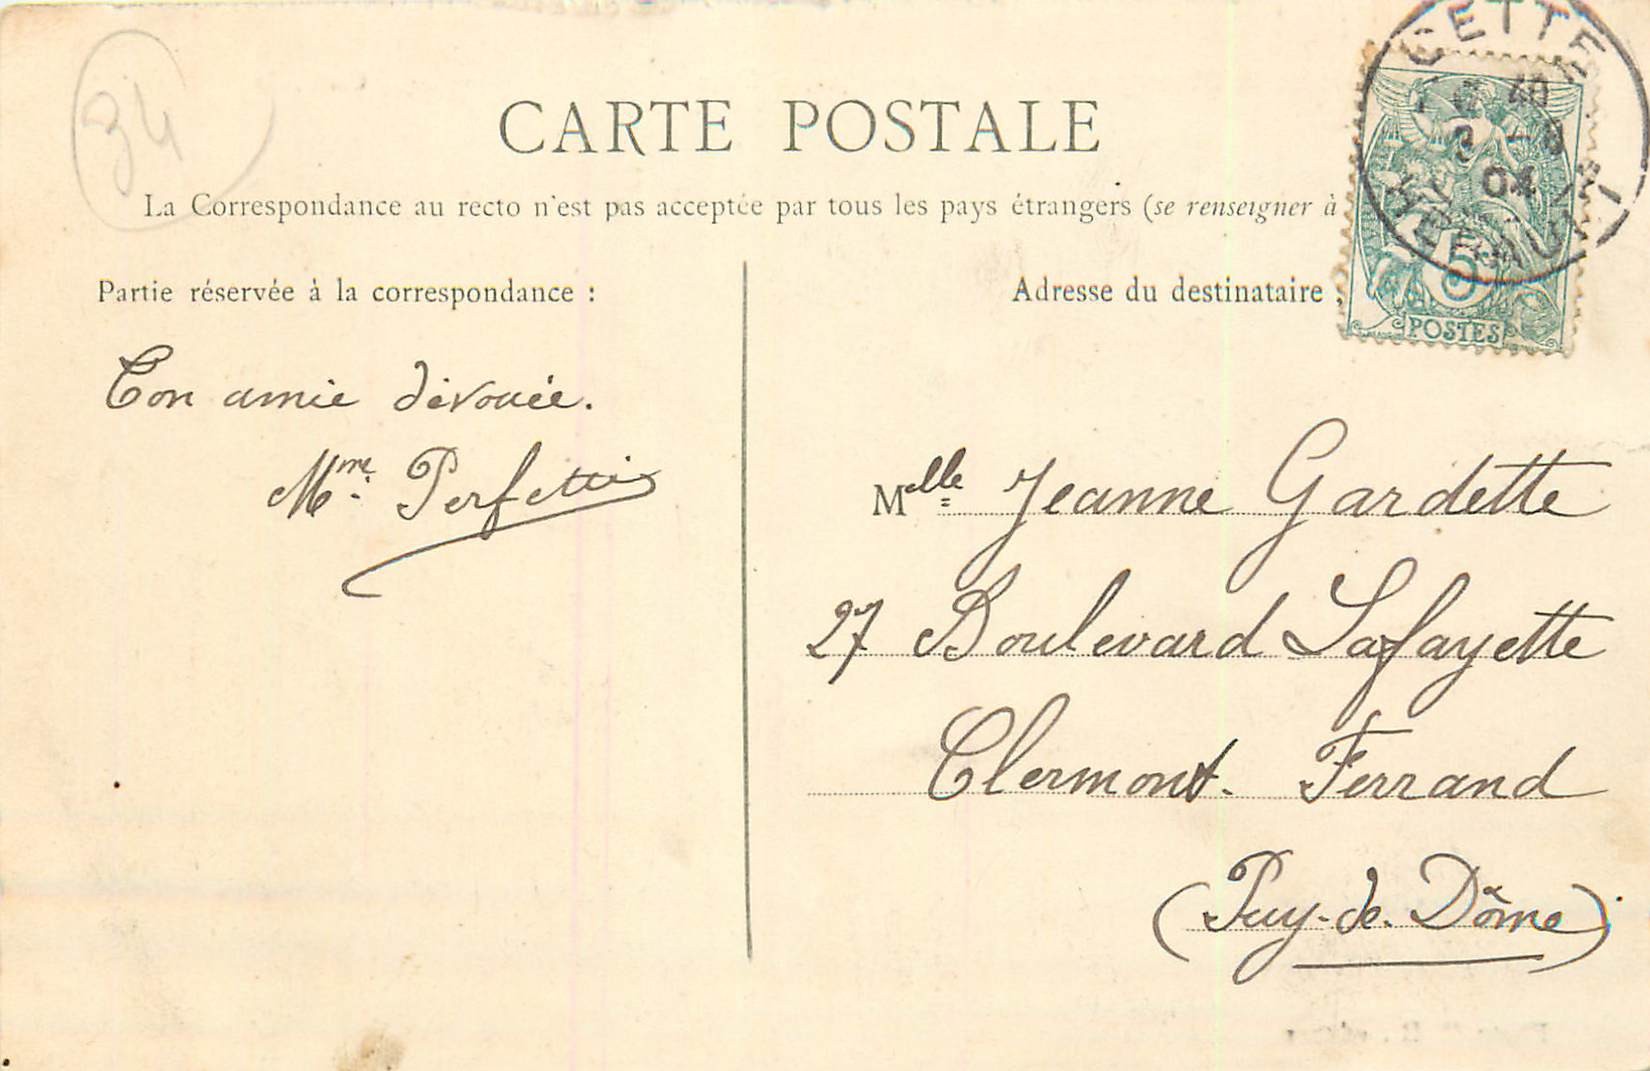 34
CARTE POSTALE
La Correspondance au recto n'est pas acceptée par tous les pays étrangers (se renseigner à
Partie réservée à la correspondance :
Adresse du destinataire :
CETTE
04
HÉRAULT
5
POSTES
Ton amie dévouée.
Mme. Perfetti
Melle Jeanne Gardette
27 Boulevard Lafayette
Clermont-Ferrand
(Puy-de-Dôme)